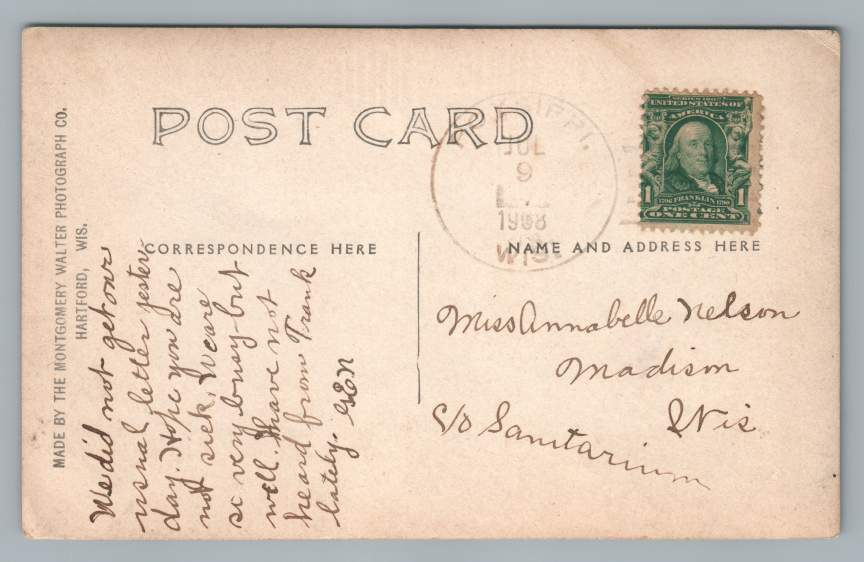 MADE BY THE MONTGOMERY WALTER PHOTOGRAPH CO.
HARTFORD, WIS.
POST CARD
CORRESPONDENCE HERE
NAME AND ADDRESS HERE
JUL
9
1908
WIS.
SERIES 1902
UNITED STATES OF
AMERICA
1
1
1706 FRANKLIN 1790
POSTAGE
ONE CENT
We did not get our
usual letter yester
day. Hope you are
not sick. We are
so very busy but
well. I have not
heard from Frank
lately. GEN
Miss Annabelle Nelson
Madison
Wis
c/o Sanitarium